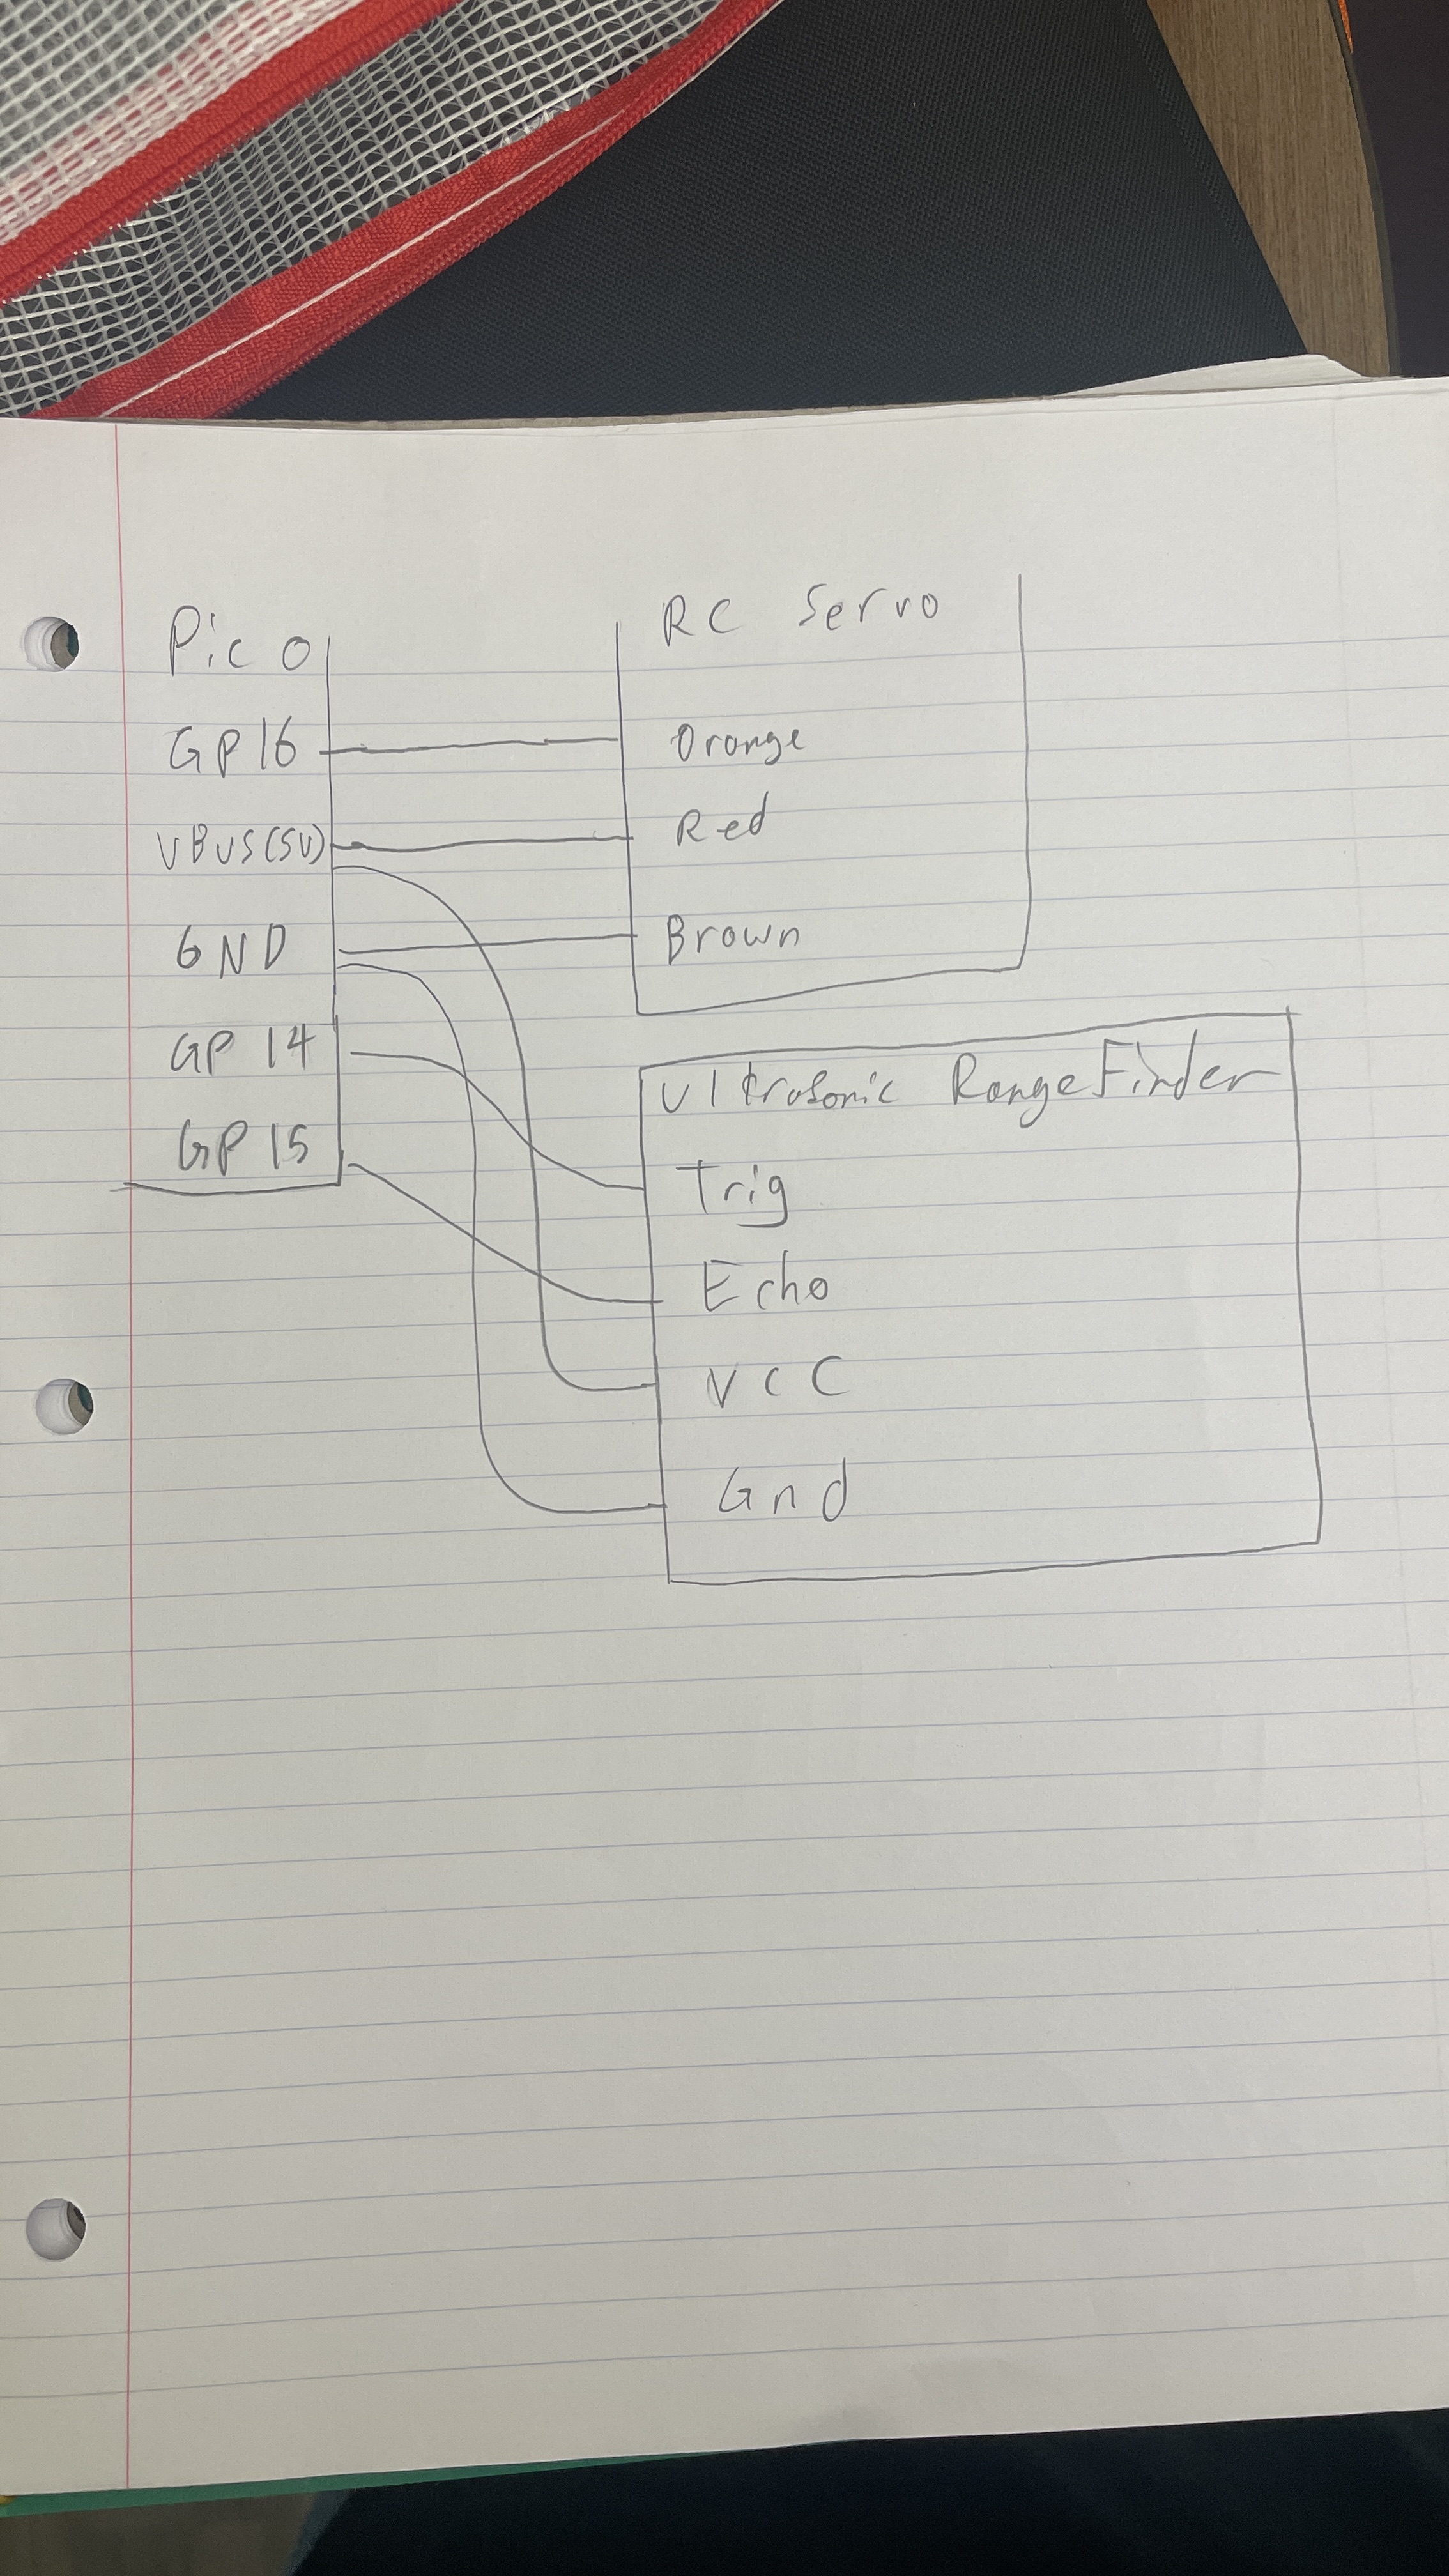 Pico
GP16
VBUS(5V)
GND
GP 14
GP 15
RC Servo
Orange
Red
Brown
Ultrasonic RangeFinder
Trig
Echo
VCC
Gnd